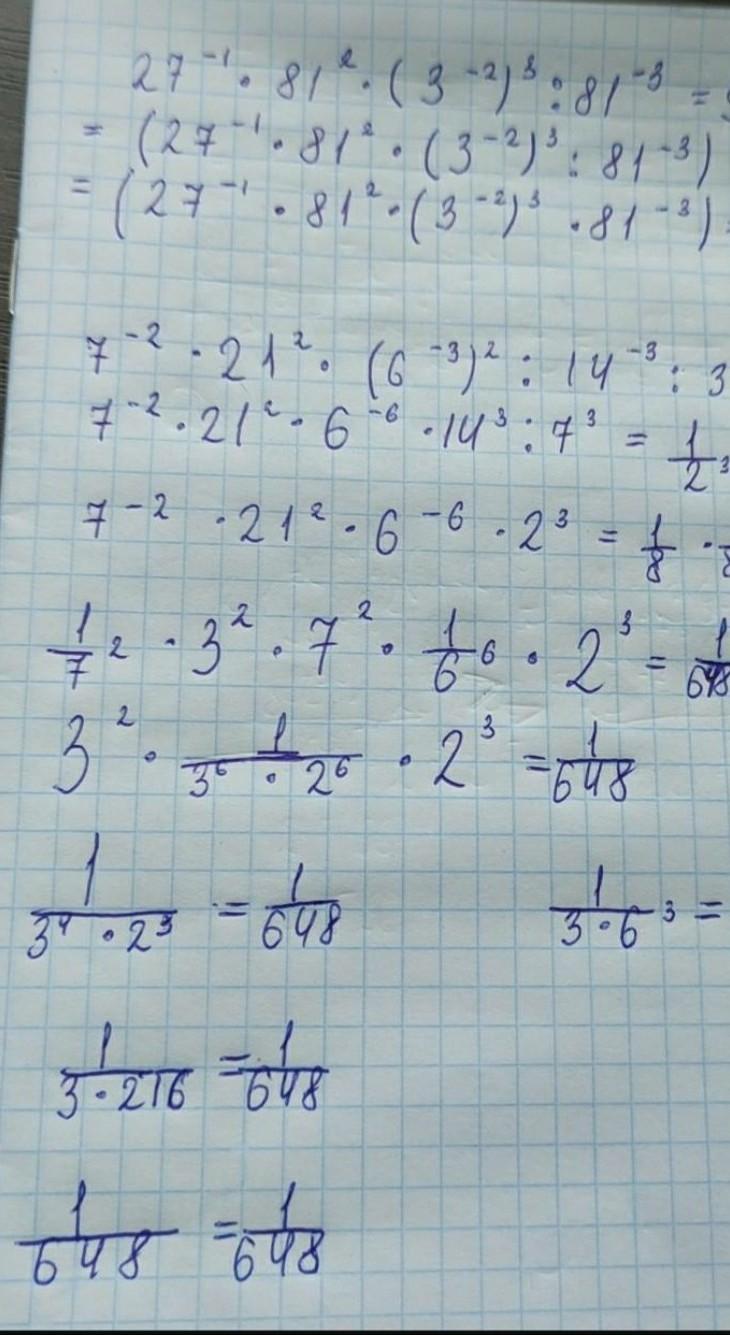 27⁻¹ · 81² · (3⁻²)³ : 81⁻³ =
= (27⁻¹ · 81² · (3⁻²)³ : 81⁻³)
= (27⁻¹ · 81² · (3⁻²)³ · 81⁻³)
7⁻² · 21² · (6⁻³)² : 14⁻³ : 3
7⁻² · 21² · 6⁻⁶ · 14³ : 7³ = 1/2³
7⁻² · 21² · 6⁻⁶ · 2³ = 1/8 ·
1/7² · 3² · 7² · 1/6⁶ · 2³ = 1/648
3² · 1/(3⁶ · 2⁶) · 2³ = 1/648
1/(3⁴ · 2³) = 1/648 1/(3 · 6³) =
1/(3 · 216) = 1/648
1/648 = 1/648